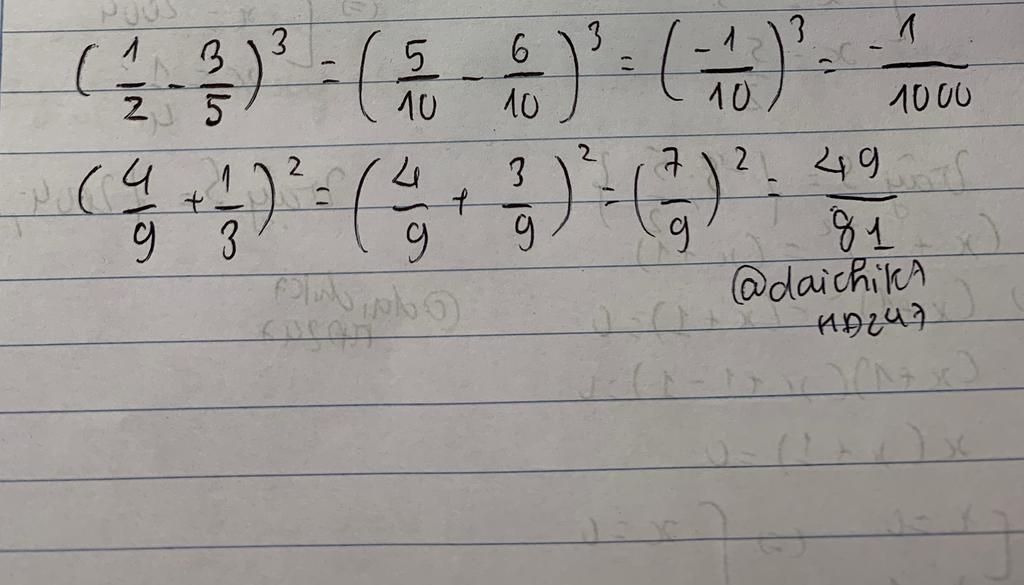 (1/2 - 3/5)³ = (5/10 - 6/10)³ = (-1/10)³ = -1/1000
(4/9 + 1/3)² = (4/9 + 3/9)² = (7/9)² = 49/81
@daichika
HD247